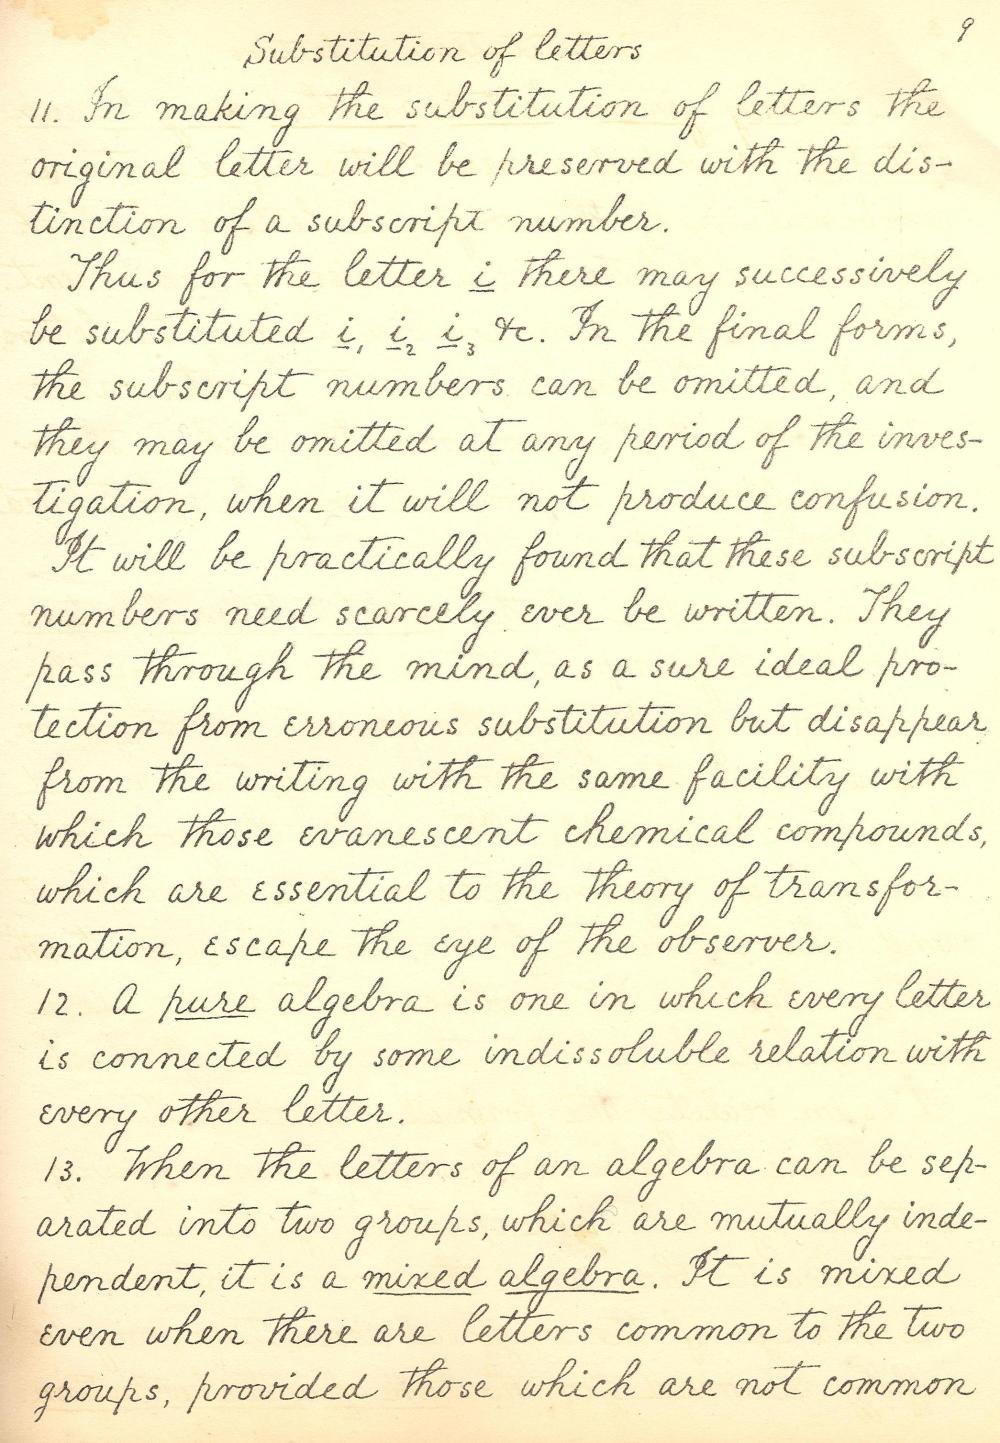 9
Substitution of letters
11. In making the substitution of letters the
original letter will be preserved with the dis-
tinction of a subscript number.
Thus for the letter i there may successively
be substituted i₁ i₂ i₃ &c. In the final forms,
the subscript numbers can be omitted, and
they may be omitted at any period of the inves-
tigation, when it will not produce confusion.
It will be practically found that these subscript
numbers need scarcely ever be written. They
pass through the mind, as a sure ideal pro-
tection from erroneous substitution but disappear
from the writing with the same facility with
which those evanescent chemical compounds,
which are essential to the theory of transfor-
mation, escape the eye of the observer.
12. A pure algebra is one in which every letter
is connected by some indissoluble relation with
every other letter.
13. When the letters of an algebra can be sep-
arated into two groups, which are mutually inde-
pendent, it is a mixed algebra. It is mixed
even when there are letters common to the two
groups, provided those which are not common